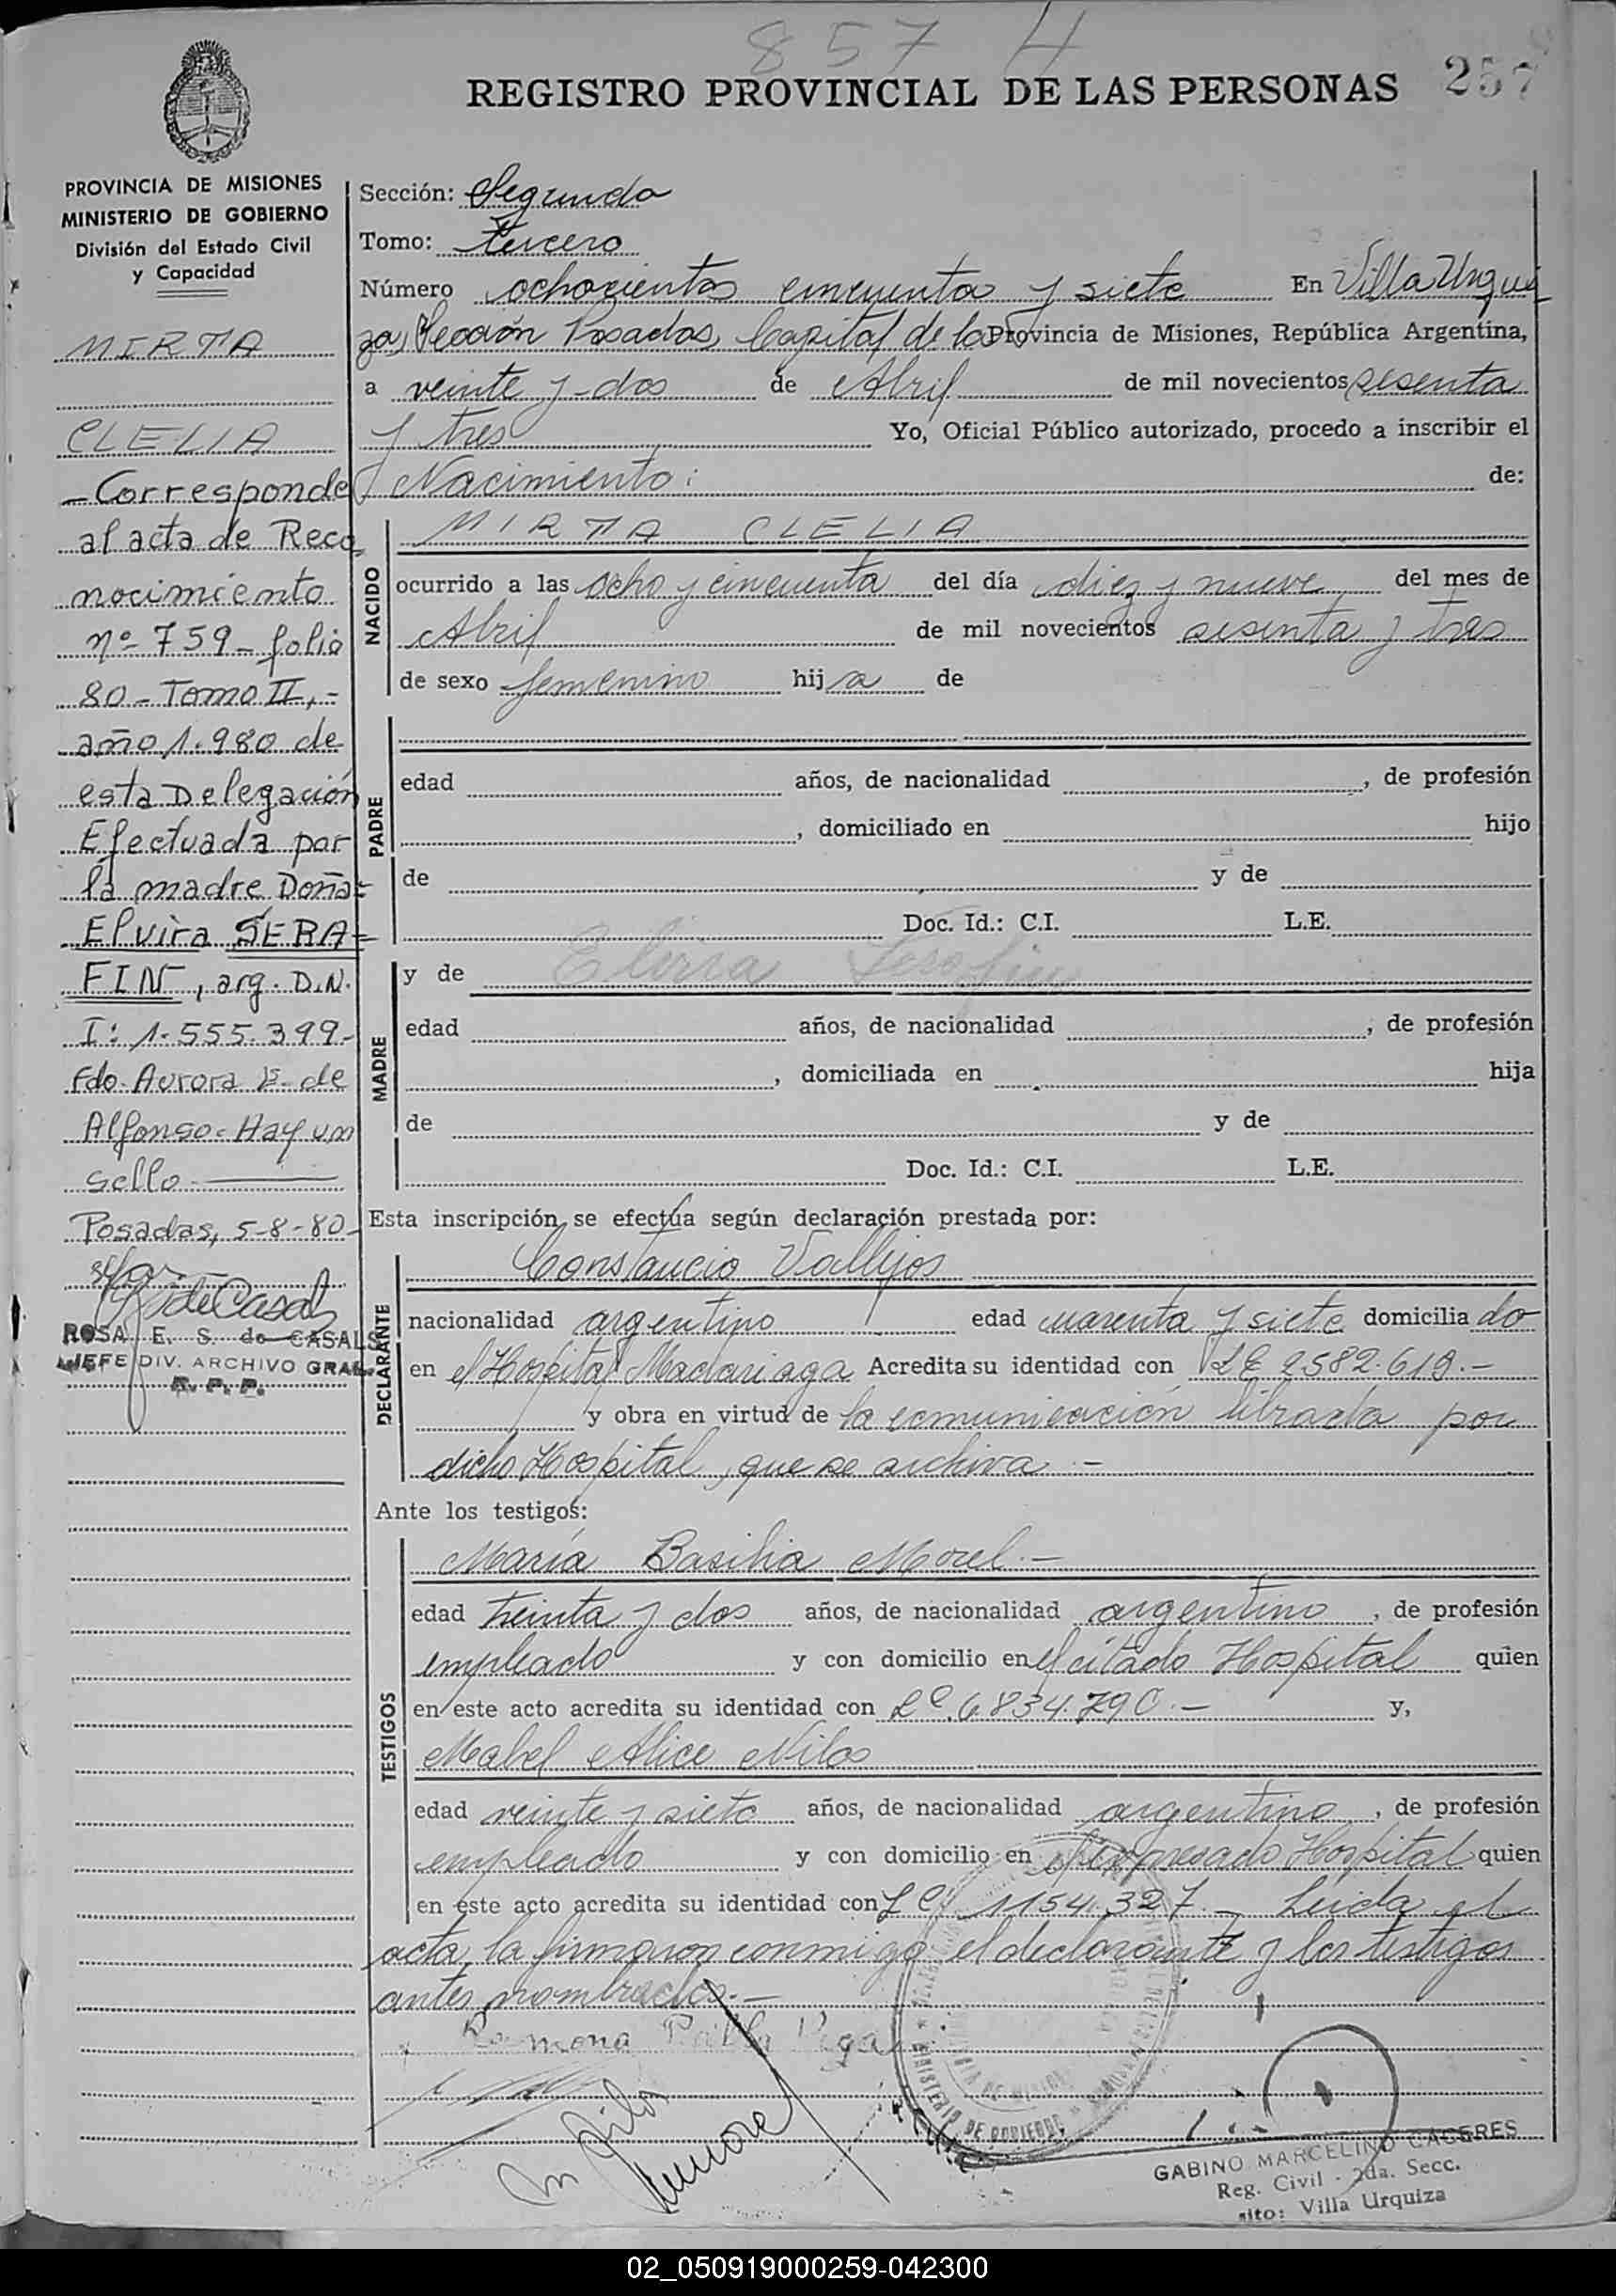 857 H
REGISTRO PROVINCIAL DE LAS PERSONAS 257
PROVINCIA DE MISIONES
MINISTERIO DE GOBIERNO
División del Estado Civil
y Capacidad
MIRTA
CLELIA
- Corresponde
al acta de Reco
nocimiento
nº 759 - folio
80 - Tomo II, -
año 1.980 de
esta Delegación
Efectuada por
la madre Doña =
Elvira SERA=
FIN, arg. D.N.
I: 1.555.399-
Fdo. Aurora E. de
Alfonso - Hay un
sello
Posadas, 5-8-80-
de Casals
ROSA E. S. de CASALS
JEFE DIV. ARCHIVO GRAL.
R. P. P.
Sección: Segunda
Tomo: tercero
Número ochocientos cincuenta y siete En Villa Urqui
za, Sección Posadas, Capital de la Provincia de Misiones, República Argentina,
a veinte y dos de Abril de mil novecientos sesenta
y tres Yo, Oficial Público autorizado, procedo a inscribir el
Nacimiento: de:
NACIDO
MIRTA CLELIA
ocurrido a las ocho y cincuenta del día diez y nueve del mes de
Abril de mil novecientos sesenta y tres
de sexo femenino hija de
PADRE
edad años, de nacionalidad , de profesión
, domiciliado en hijo
de y de
Doc. Id.: C.I. L.E.
MADRE
y de Elvira Serafin
edad años, de nacionalidad , de profesión
, domiciliada en hija
de y de
Doc. Id.: C.I. L.E.
Esta inscripción se efectúa según declaración prestada por:
DECLARANTE
Constancio Vallejos
nacionalidad argentino edad cuarenta y siete domicilia do
en el Hospital Madariaga Acredita su identidad con LE 2582.619.-
y obra en virtud de la comunicación librada por
dicho Hospital, que se archiva.-
Ante los testigos:
TESTIGOS
María Basilia Morel.-
edad treinta y dos años, de nacionalidad argentino, de profesión
empleado y con domicilio en el citado Hospital quien
en este acto acredita su identidad con LC. 6.834.790.- y,
Mabel Alice Nilos
edad veinte y siete años, de nacionalidad argentino, de profesión
empleado y con domicilio en el expresado Hospital quien
en este acto acredita su identidad con LC 1154.327.- Leída el
acta, la firmaron conmigo el declarante y los testigos
antes nombrados.-
Ramona Vega
MINISTERIO DE GOBIERNO
GABINO MARCELINO CACERES
Reg. Civil - 2da. Secc.
sito: Villa Urquiza
02_050919000259-042300